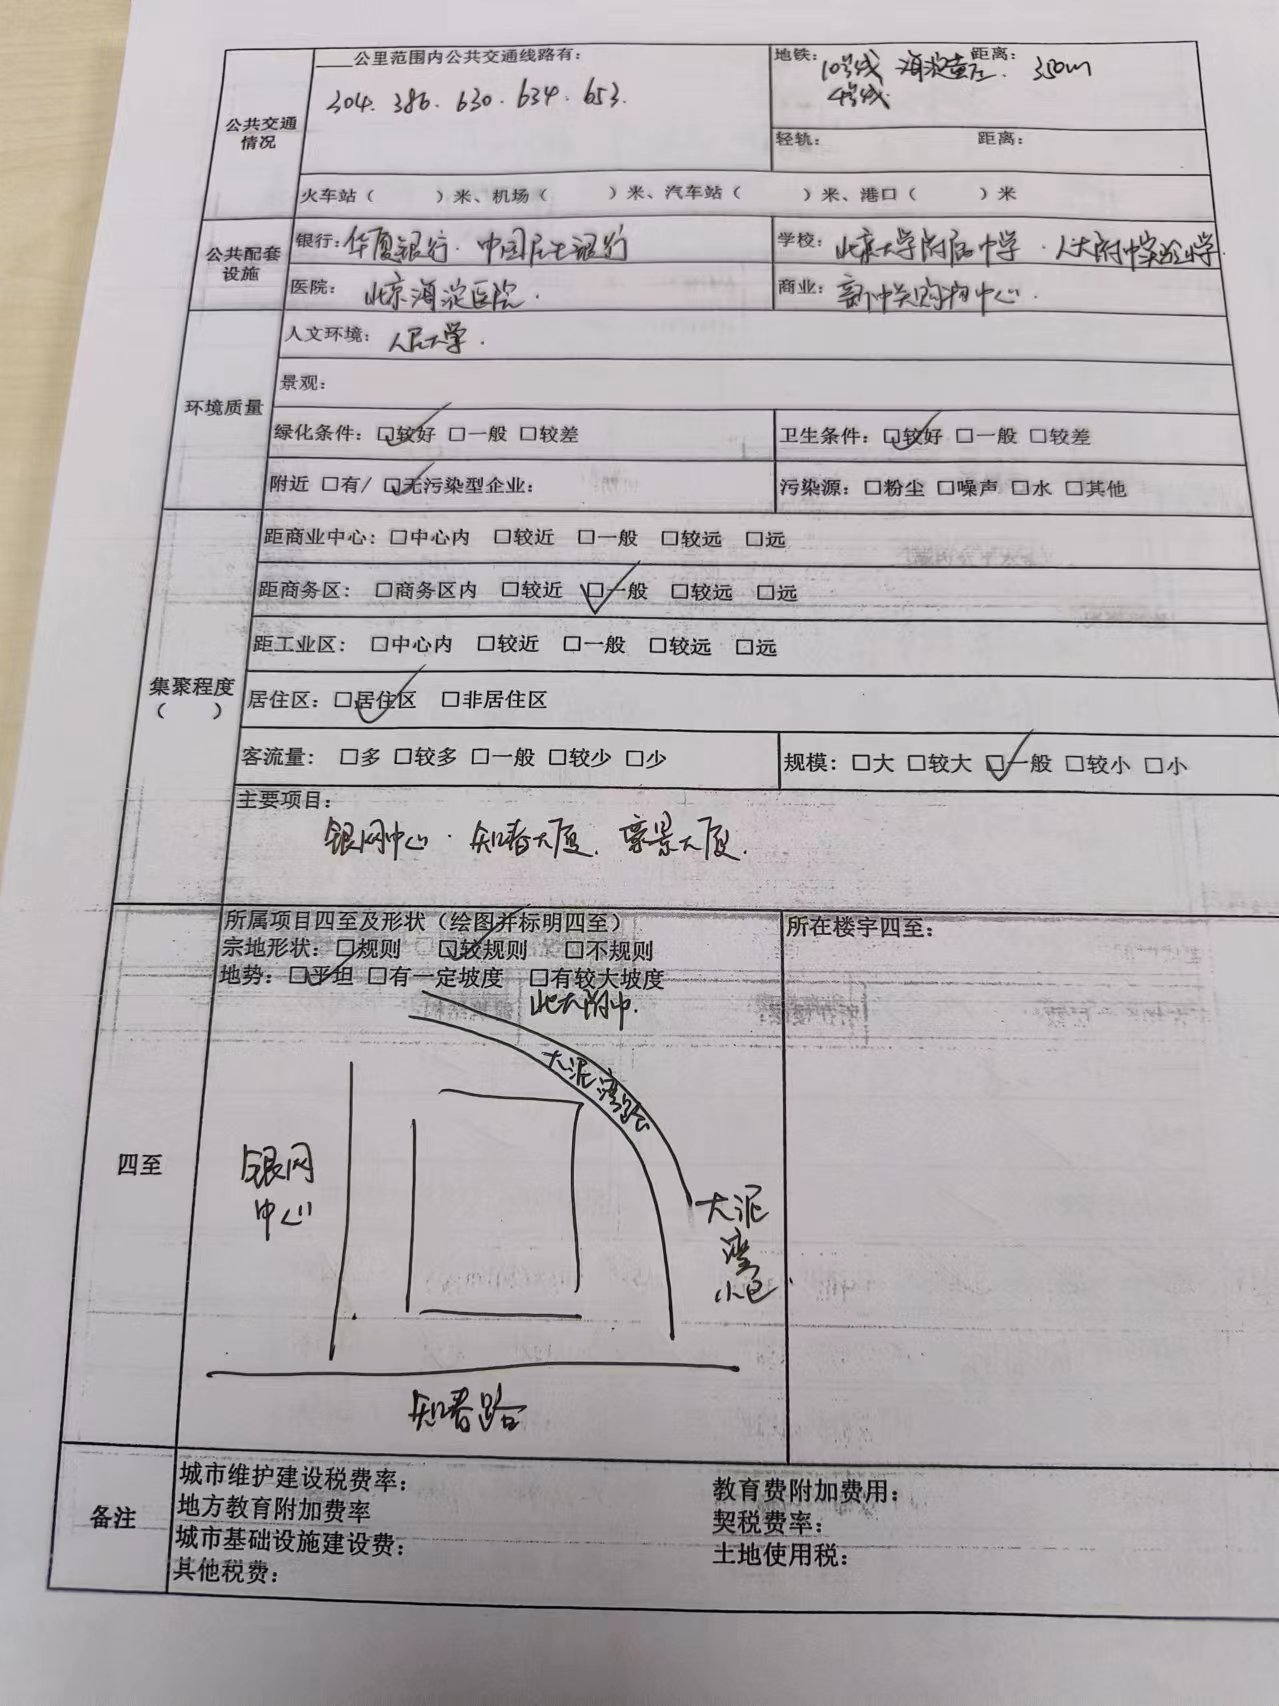 公共交通情况
____公里范围内公共交通线路有：
304. 386. 630. 634. 653.
地铁：10号线 海淀黄庄. 距离：350m
4号线
轻轨： 距离：
火车站（ ）米、机场（ ）米、汽车站（ ）米、港口（ ）米
公共配套设施
银行：华夏银行. 中国民生银行
学校：北京大学附属中学. 人大附中实验小学
医院：北京海淀医院.
商业：新中关购物中心.
环境质量
人文环境：人民大学.
景观：
绿化条件：☑较好 □一般 □较差
卫生条件：☑较好 □一般 □较差
附近 □有/ ☑无污染型企业：
污染源：□粉尘 □噪声 □水 □其他
集聚程度
（ ）
距商业中心：□中心内 □较近 □一般 □较远 □远
距商务区： □商务区内 □较近 ☑一般 □较远 □远
距工业区： □中心内 □较近 □一般 □较远 □远
居住区：☑居住区 □非居住区
客流量： □多 □较多 □一般 □较少 □少
规模：□大 □较大 ☑一般 □较小 □小
主要项目：
银网中心. 知春大厦. 豪景大厦.
四至
所属项目四至及形状（绘图并标明四至）
宗地形状：□规则 ☑较规则 □不规则
地势：☑平坦 □有一定坡度 □有较大坡度
所在楼宇四至：
北大附中.
大泥湾路
银网
中心
大泥
湾
小区.
知春路
备注
城市维护建设税费率：
地方教育附加费率
城市基础设施建设费：
其他税费：
教育费附加费用：
契税费率：
土地使用税：